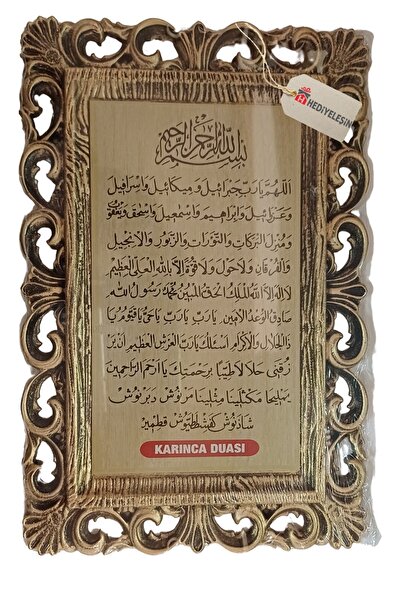 HEDİYELEŞİN
بسم الله الرحمن الرحيم
اللهم يارب جبرائيل وميكائيل واسرافيل
وعزرائيل وابراهيم واسمعيل واسحق ويعقوب
ومنزل البركات والتورات والزبور والانجيل
والفرقان ولاحول ولا قوة الا بالله العلى العظيم
لا اله الا الله الملك الحق المبين محمد رسول الله
صادق الوعد الامين يارب يارب ياحى ياقيوم يا
ذالجلال والاكرام اسئلك يارب العرش العظيم ان ير
زقنى حلالا طيبا برحمتك يا ارحم الراحمين
يمليخا مكثلينا مثلينا مرنوش دبرنوش
شاذنوش كفشططيوش قطمير
KARINCA DUASI